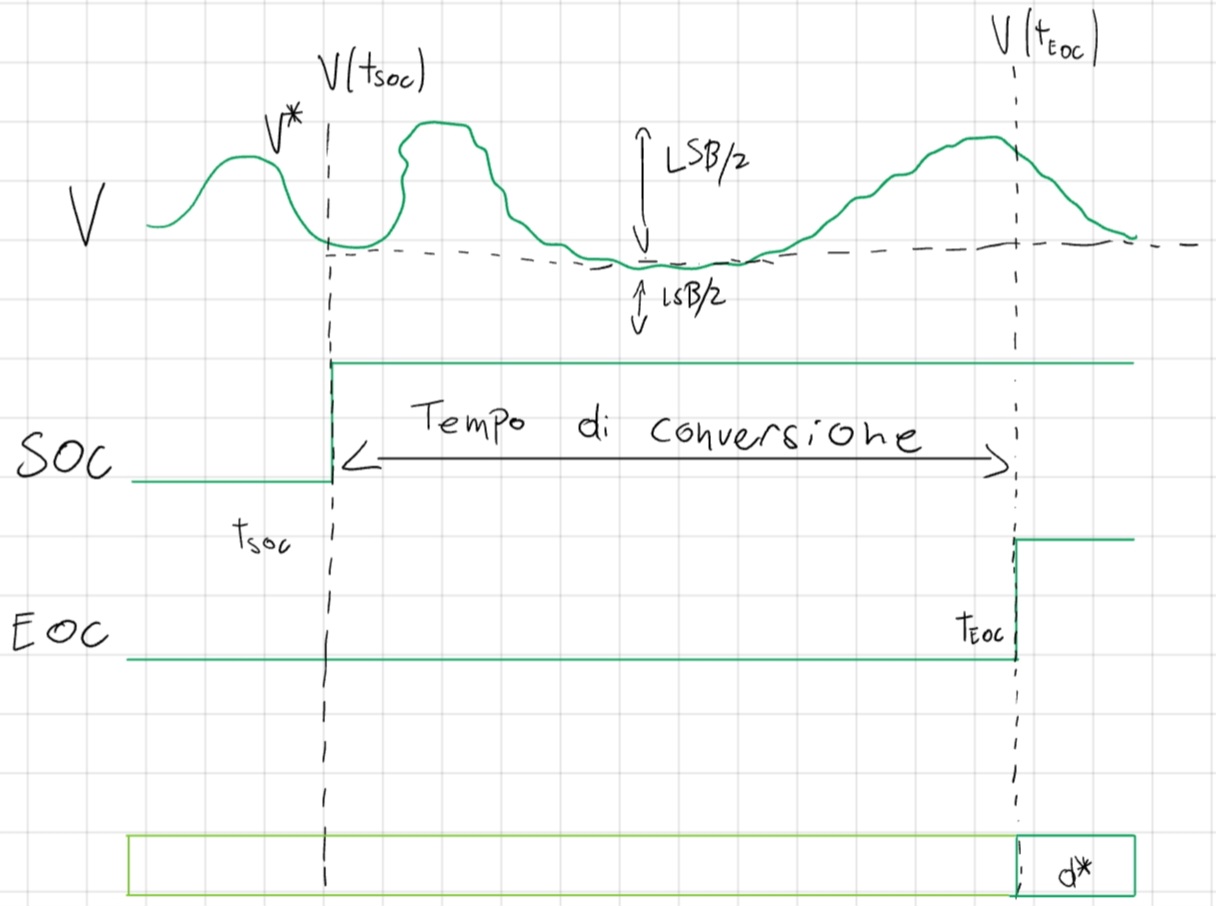 V(t_EOC)
V(t_SOC)
V*
LSB/2
V
LSB/2
Tempo di conversione
SOC
t_SOC
EOC
t_EOC
d*